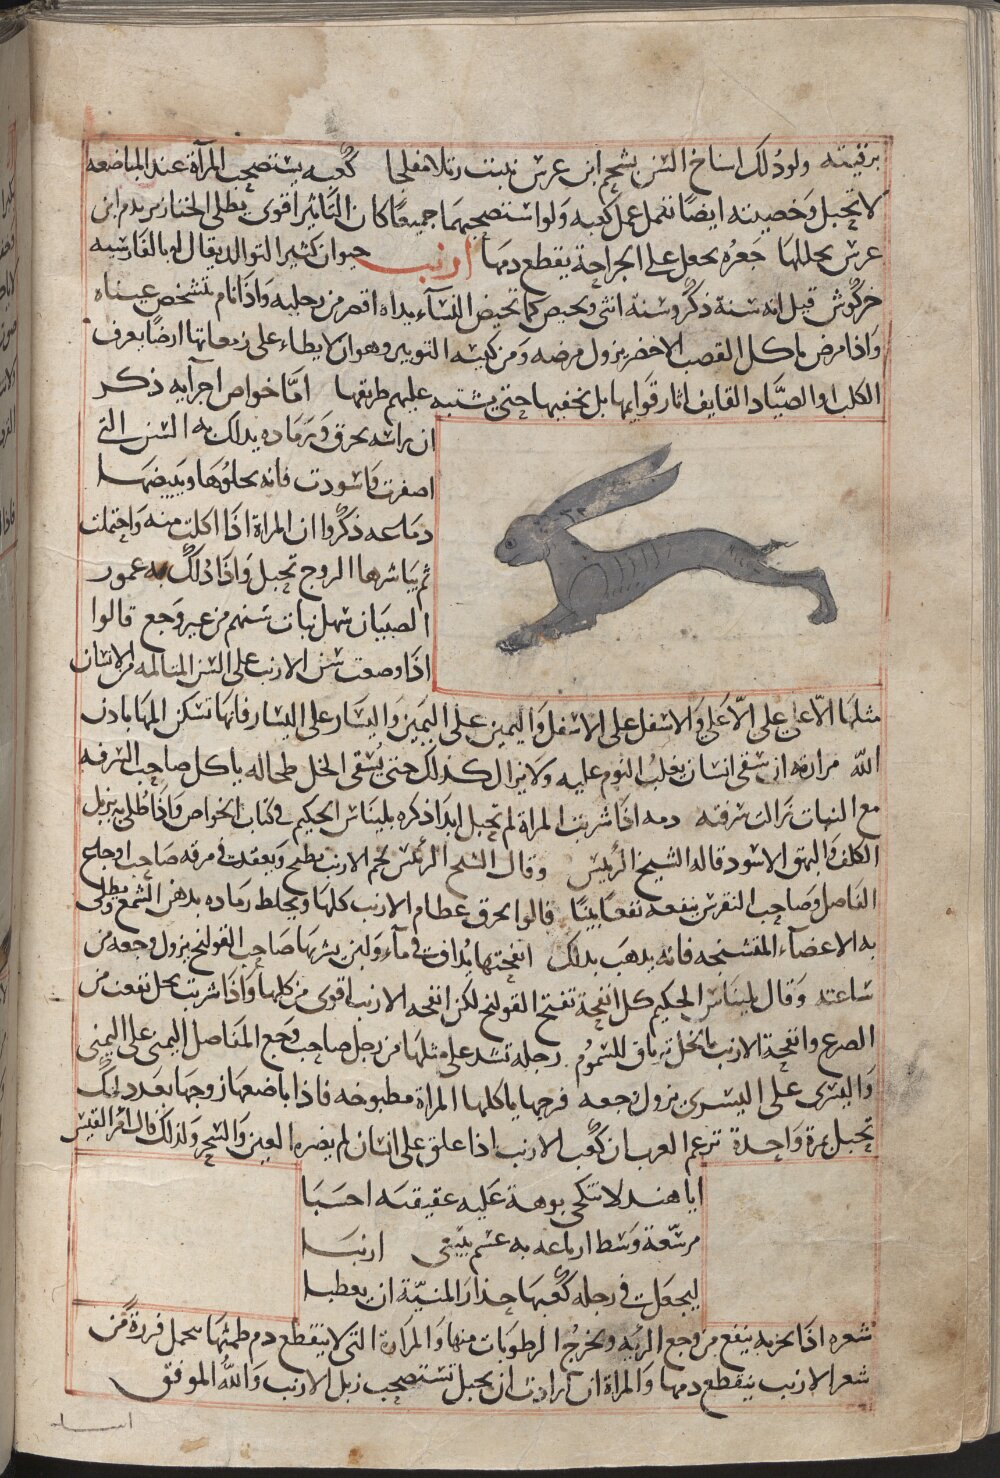 برقبته ولو دُلك اسناخ السن بشحم ابن عرس نبتت كعبه يستصحب المرآة عند المباضعه
لا تحبل وخصيته ايضًا تعمل عمل كعبه ولو استصحبهما جميعًا كان التاثير اقوى يطلى الخنازير بدم ابن
عرس يحللها جعره يجعل على الجراحة يقطع دمها ارنب حيوان كثير التوالد يقال له بالفارسيه
خركوش قيل انه سنة ذكر وسنة انثى وتحيض كما تحيض النسآء يداه اقصر من رجليه واذا نام تشخص عيناه
واذا مرض ياكل القصب الاخضر يزول مرضه ومن كيسه التوبير وهو ان لا يطاء على زمعاتها ارضًا يعرف
الكلب او الصيَّاد القايف اثار قوايمها بل تخفيها حتى يشتبه عليهم طريقها امَّا خواص اجزآيه ذكر
ان راسه يحرق ورماده يدلك به السن التى
اصفرت واسودت فانه يجلوها ويبيضها
دماغه ذكروا ان المراة اذا اكلت منه واحتملت
ثم يباشرها الزوج تحبل واذا دُلك به عمور
الصبيان سهل نبات سنهم من غير وجع قالوا
اذا وضعت سن الارنب على السن المتالمه من الانسان
مثلها الاعلى على الاعلى والاسفل على الاسفل واليمين على اليمين واليسار على اليسار فانها تسكن المها باذن
الله مرارته ان سقى انسان يغلب النوم عليه ولا يزال كذلك حتى يُسقى الخل طحاله ياكل صاحب الترفه
مع النبات زالت ترفته دمه اذا شربت المراة لم تحبل ابدا ذكره بليناس الحكيم فى كتاب الخواص واذا طُلى به يزيل
الكلف والبهق الاسود قاله الشيخ الرئيس وقال الشيخ الرئيس لحم الارنب يطبخ ويقعد فى مرقه صاحب اوجاع
المفاصل وصاحب النقرس ينفعه نفعًا بينًا قالوا يحرق عظام الارنب كلها ويخلط رماده بدهن الشمع ويطلى
به الاعضآء المتشنجه فانه يذهب بذلك انفحتها يُداف فى مآء ولبن يشربها صاحب القولنج يزول وجعه من
ساعته وقال بليناس الحكيم كل انفحة تفتح القولنج لكن انفحه الارنب اقوى من كلها واذا شربت بخل نفعت من
الصرع وانفحة الارنب بالخل ترياق للسموم رجله تشد على مثلها من رجل صاحب وجع المفاصل اليمنى على اليمنى
واليسرى على اليسرى يزول وجعه فرجها ياكلها المراة مطبوخه فاذا باضعها زوجها بعد ذلك
تحبل بمرة واحدة تزعم العرب ان كعب الارنب اذا علق على انسان لم يضره العين والسحر ولذلك قال امرُ القيس
ايا هند لا تنكحى بوهة عليه عقيقته احسبا
مرسّعة وسط ارباعه به عسم يبتغى ارنبا
ليجعل فى رجله كعبها حذار المنيّة ان يعطبا
شعره اذا بخر به ينفع من وجع الريه ويخرج الرطوبات منها والمرآة التى لا ينقطع دم طمثها تحمل فرزةً من
شعر الارنب ينقطع دمها والمراة ان ارادت ان تحبل تستصحب زبل الارنب والله الموفق